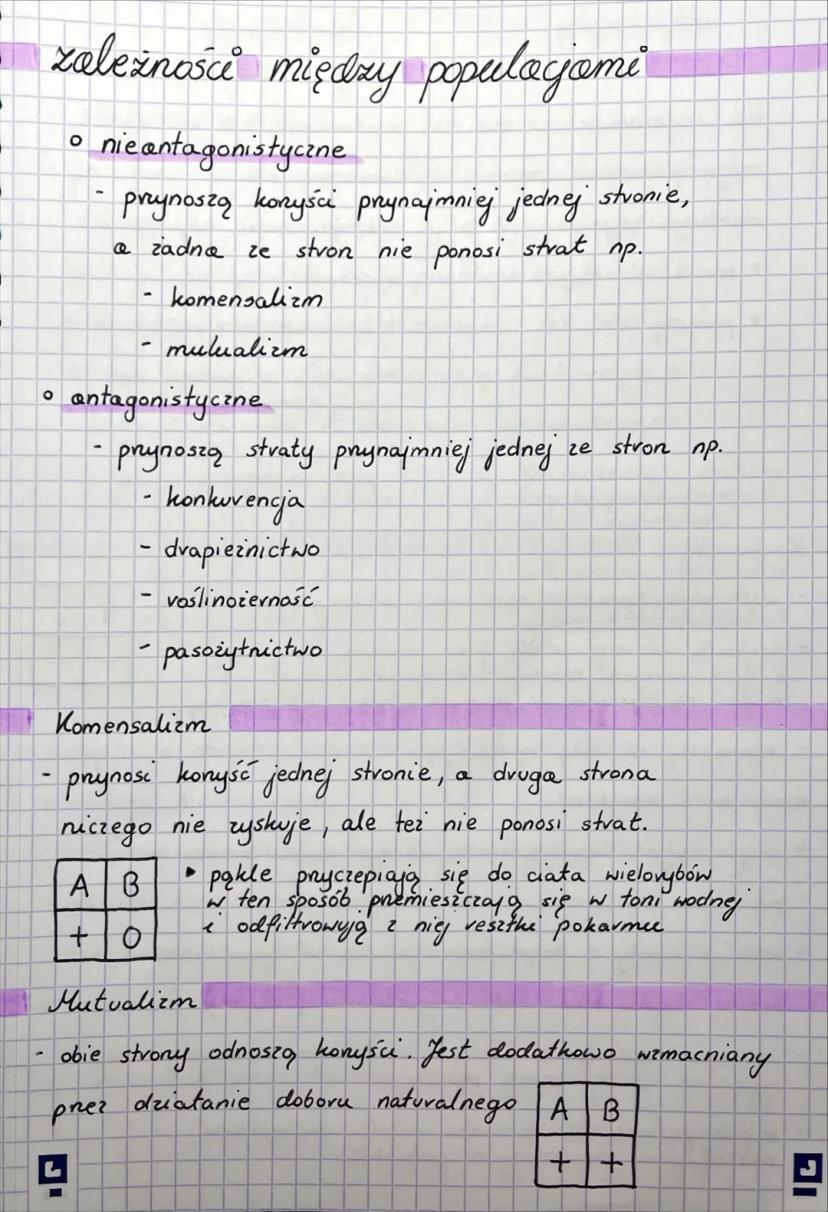 zależności między populacjami
o nieantagonistyczne
- przynoszą korzyści przynajmniej jednej stronie,
a żadna ze stron nie ponosi strat np.
- komensalizm
- mutualizm
o antagonistyczne
- przynoszą straty przynajmniej jednej ze stron np.
- konkurencja
- drapieżnictwo
- roślinożerność
- pasożytnictwo
Komensalizm
- przynosi korzyść jednej stronie, a druga strona
niczego nie zyskuje, ale też nie ponosi strat.
A B
+ 0
• pąkle przyczepiają się do ciała wielorybów
w ten sposób przemieszczają się w toni wodnej
i odfiltrowują z niej resztki pokarmu
Mutualizm
- obie strony odnoszą korzyści. Jest dodatkowo wzmacniany
przez działanie doboru naturalnego
A B
+ +